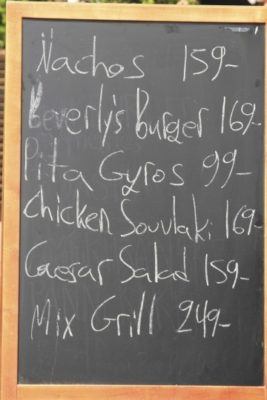 Nachos 159-
Beverly's Burger 169-
Pita Gyros 99-
Chicken Souvlaki 169-
Caesar Salad 159-
Mix Grill 249-